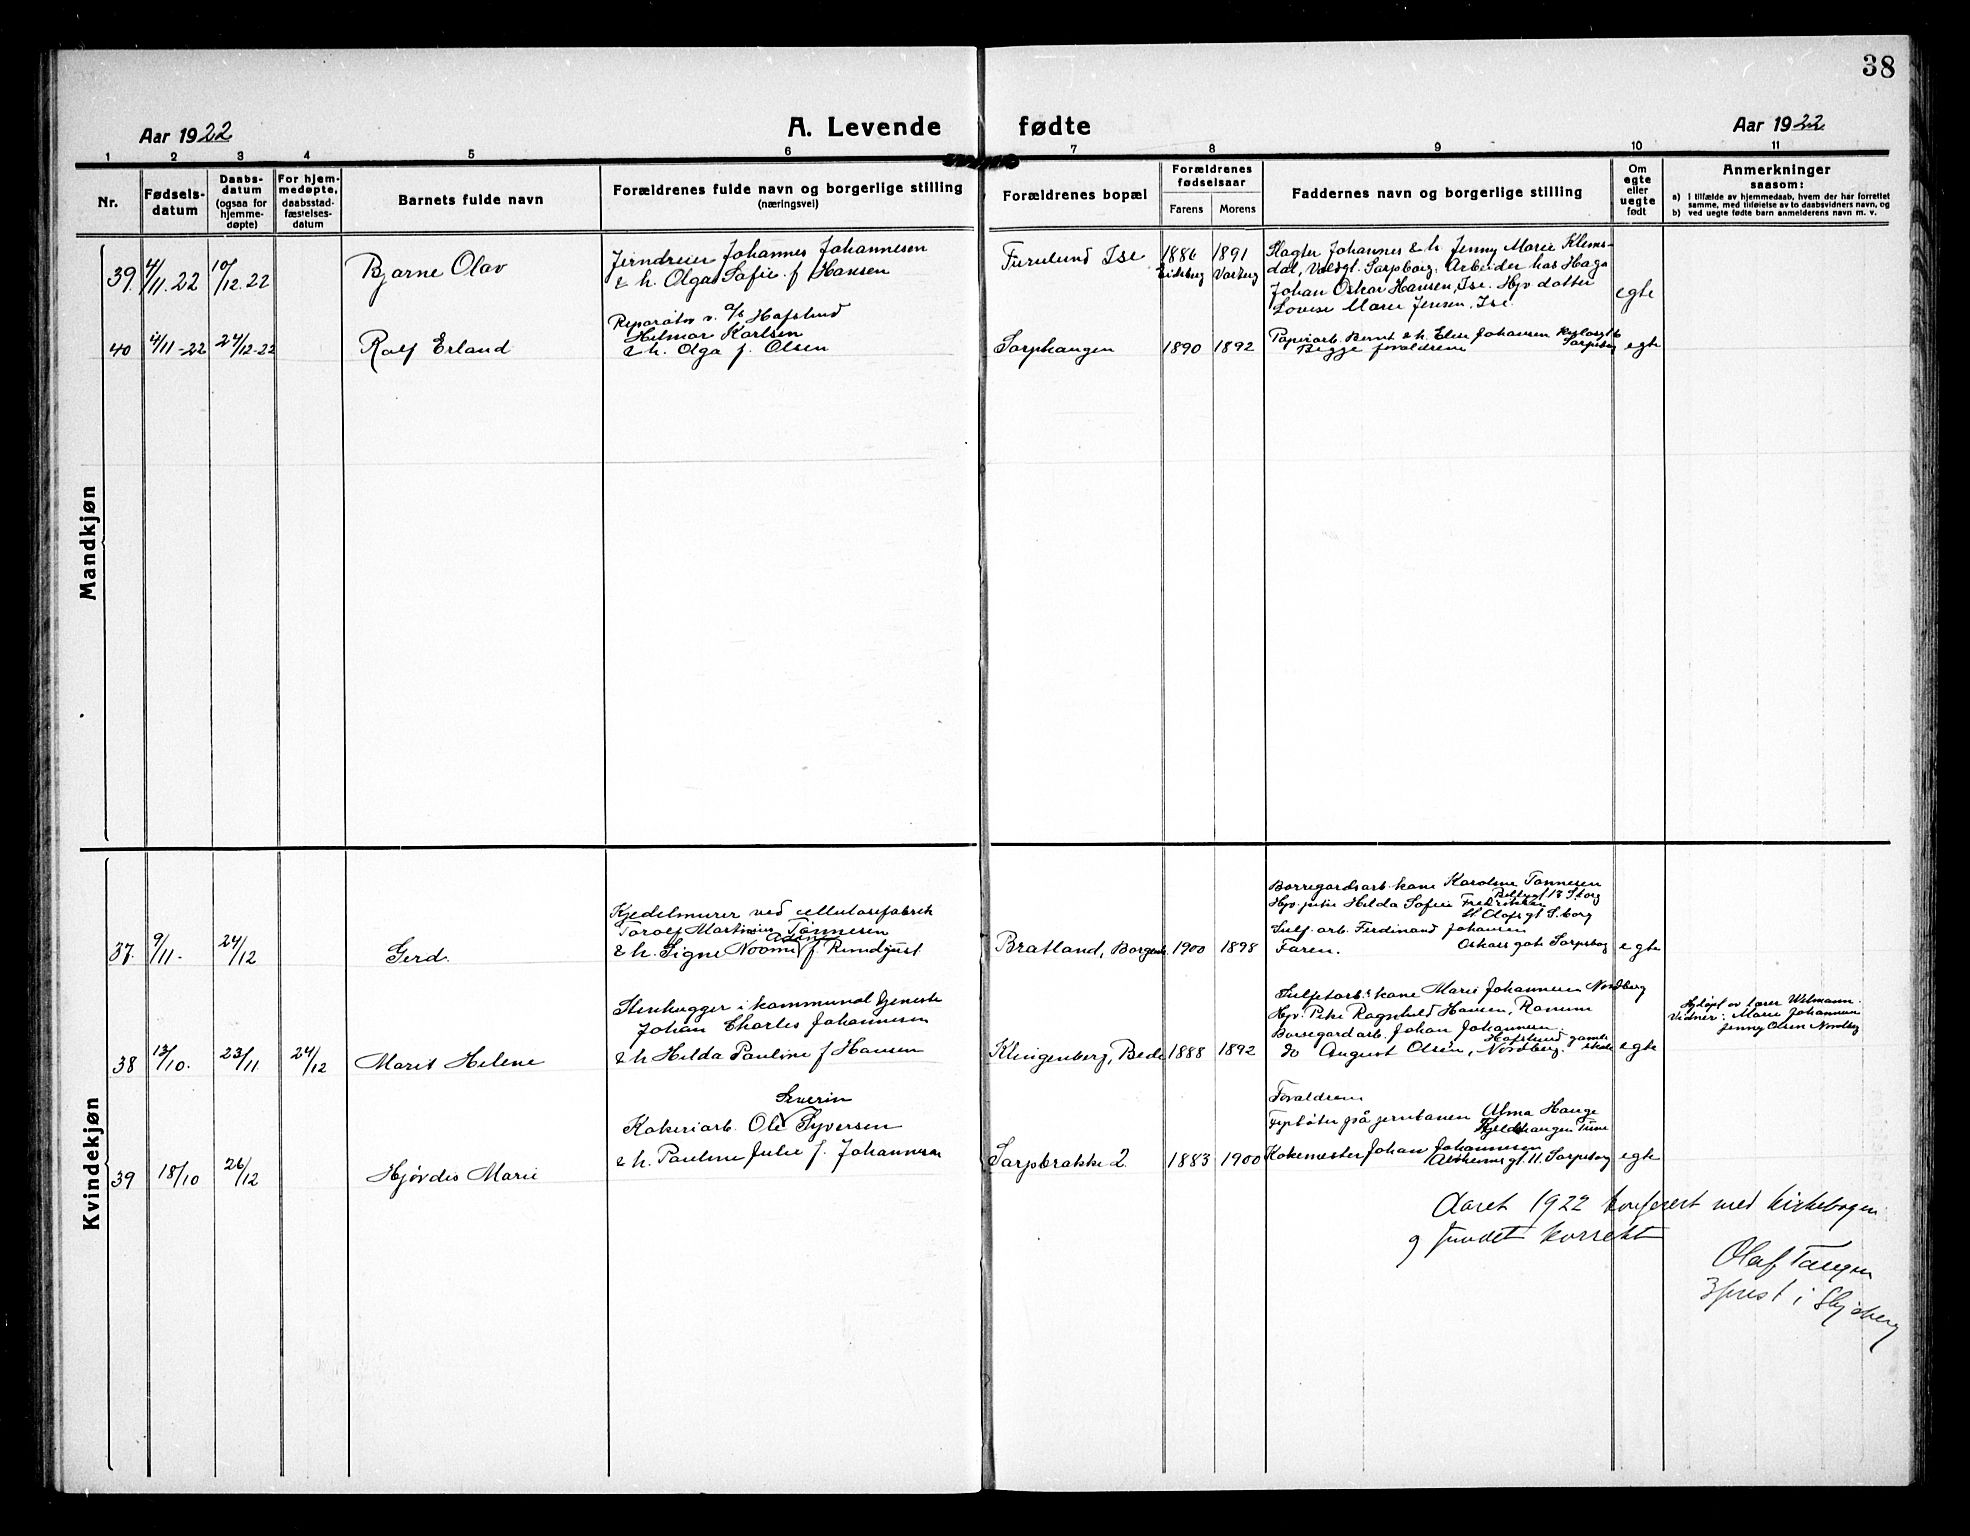 38
Aar 1922
A. Levende fødte
Aar 1922
1 2 3 4 5 6 7 8 9 10 11
Nr.
Fødsels-
datum
Daabs-
datum
(ogsaa for
hjemme-
døpte)
For hjem-
medøpte,
daabsstad-
fæstelses-
datum
Barnets fulde navn
Forældrenes fulde navn og borgerlige stilling
(næringsvei)
Forældrenes bopæl
Forældrenes
fødselsaar
Farens Morens
Faddernes navn og borgerlige stilling
Om
egte
eller
uegte
født
Anmerkninger
saasom:
a) I tilfælde av hjemmedaab, hvem der har forrettet
samme, med tilføielse av to daabsvidners navn, og
b) ved uegte fødte barn anmelderens navn m. v.
Mandkjøn
39. 4/11.22 10/12.22
Bjarne Olav
Jerndreier Johannes Johannesen
& h. Olga Sofie f. Hansen
Furulund Ise
1886 1891
Eidsberg Varteig
Slagter Johannes & h. Jenny Marie Klems-
dal, Voldgt. Sarpsborg. Arbeider hos Haga
Johan Oskar Hansen, Ise. Hjv datter
Lovise Marie Jensen, Ise.
egte
40 4/11-22 24/12-22
Ralf Erland
Reparatør v. a/s Hafslund
Helmar Karlsen
& h. Olga f. Olsen
Sarphaugen
1890 1892
Papirarb. Bernt & h. Elise Johansen
Sarpsborg
Begge forældrene
egte
Kvindekjøn
37. 9/11- 24/12
Gerd.
Kjedelmurer ved cellulosefabrik
Torolf Martinius Tønnesen
& h. Signe Noomi f. Rundqust
Bratland, Borgen
1900 1898
Borregardsarb. kone Karoline Tønnesen
Hjv. pike Hilda Sofie Fredriksen
St Olafsgt S.borg
Sulf. arb. Ferdinand Johansen
Oskars gate Sarpsborg
Faren.
egte
38 13/10. 23/11 24/12
Marit Helene
Stenhugger i kommunal tjeneste
Johan Charles Johannesen
& h. Hilda Pauline f. Hansen
Klingenberg, Bede
1888 1892
Sulfetarb. kone Marie Johannesen Nordberg
Hjv. Pike Ragnhild Hansen, Ranum
Borregardarb. Johan Johannesen,
Hafslund gamle skole
do August Olsen, Nordberg.
egte
Hjdøpt av lærer Wilmann.
Vidner: Marie Johannesen
Jenny Olsen Nordberg
39 18/10 26/12
Hjørdis Marie
Severin
Kokeriarb. Ole Syversen
& h. Pauline Julie f. Johannesen
Sarpsbrakke 2.
1883 1900
Forældrene
på jernbanen Alma Hauge
Tune
Kokemester Johan Johannesen
11. Sarpsborg
egte
Aaret 1922 konferert med kirkebogen
og fundet korrekt
Olaf Tangen
sprest i Skjeberg